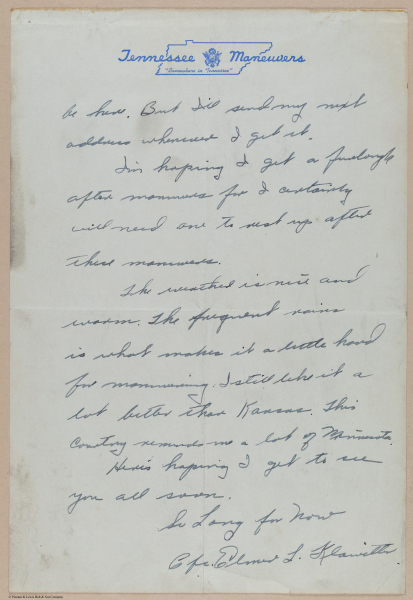 Tennessee Maneuvers
"Somewhere in Tennessee"
be here. But I'll send my next
address whenever I get it.
I'm hoping I get a furlough
after manuvers for I certainly
will need one to rest up after
these manuvers.
The weather is nice and
warm. The frequent rains
is what makes it a little hard
for manuvering. I still like it a
lot better than Kansas. This
Country reminds me a lot of Minnesota.
Here's hoping I get to see
you all soon.
So Long for Now
Elmer L.